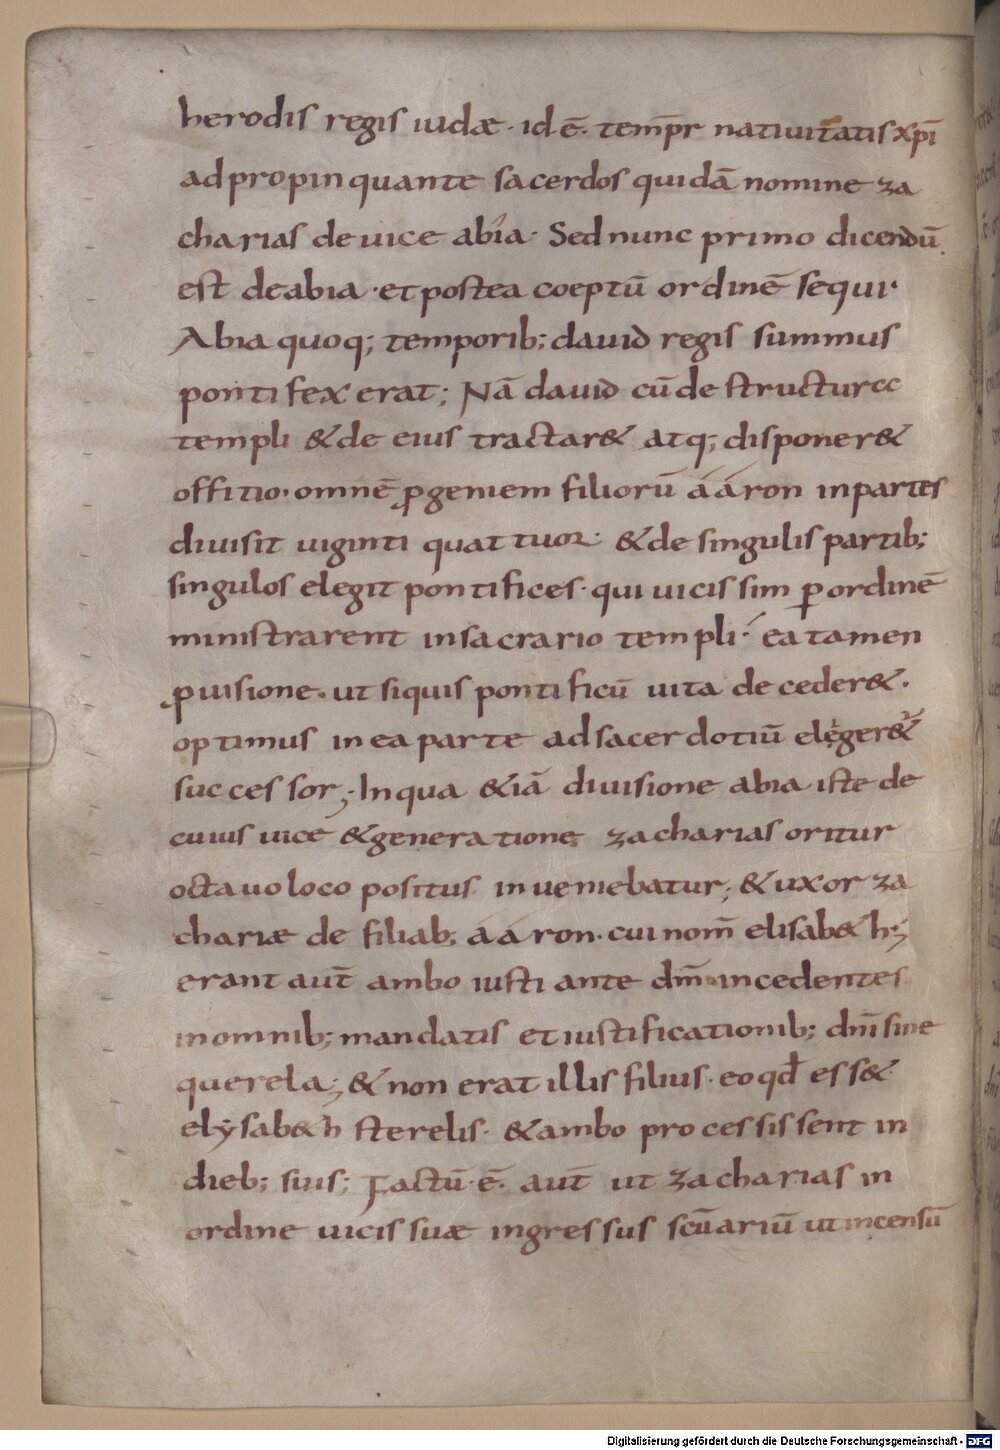 herodis regis iudæ · id ē· temp̄r natiuitatis xp̄i
adpropinquante sacerdos quidā nomine za
charias de uice abia· Sed nunc primo dicendū
est de abia · et postea coeptū ordinē sequi·
Abia quoq; temporib; dauid regis summus
pontifex erat; Nā dauid cū de structura
templi & de eius tractar& atq; disponer&
offitio· omnē ꝓgeniem filiorū ááron in partes
diuisit uiginti quattuor· & de singulis partib;
singulos elegit pontifices· qui uicissim ꝑ ordinē
ministrarent in sacrario templi· ea tamen
ꝓuisione· ut siquis pontificū uita deceder&·
optimus in ea parte ad sacerdotiū elęger&ᷣ
successor; In qua &iā diuisione abia iste de
cuius uice & generatione zacharias oritur
octauo loco positus inueniebatur; & uxor za
chariæ de filiab; ááron· cui nom̄ elisab&h;
erant aut̄ ambo iusti ante dm̄ incedentes
in omnib; mandatis et iustificationib; dn̄i sine
querela; & non erat illis filius· eo qd̄ ess&
elẏsab&h sterelis· & ambo processissent in
dieb; suis; Factū· ē· aut̄ ut zacharias in
ordine uicis suæ ingressus scūariū ut incensū
Digitalisierung gefördert durch die Deutsche Forschungsgemeinschaft - DFG